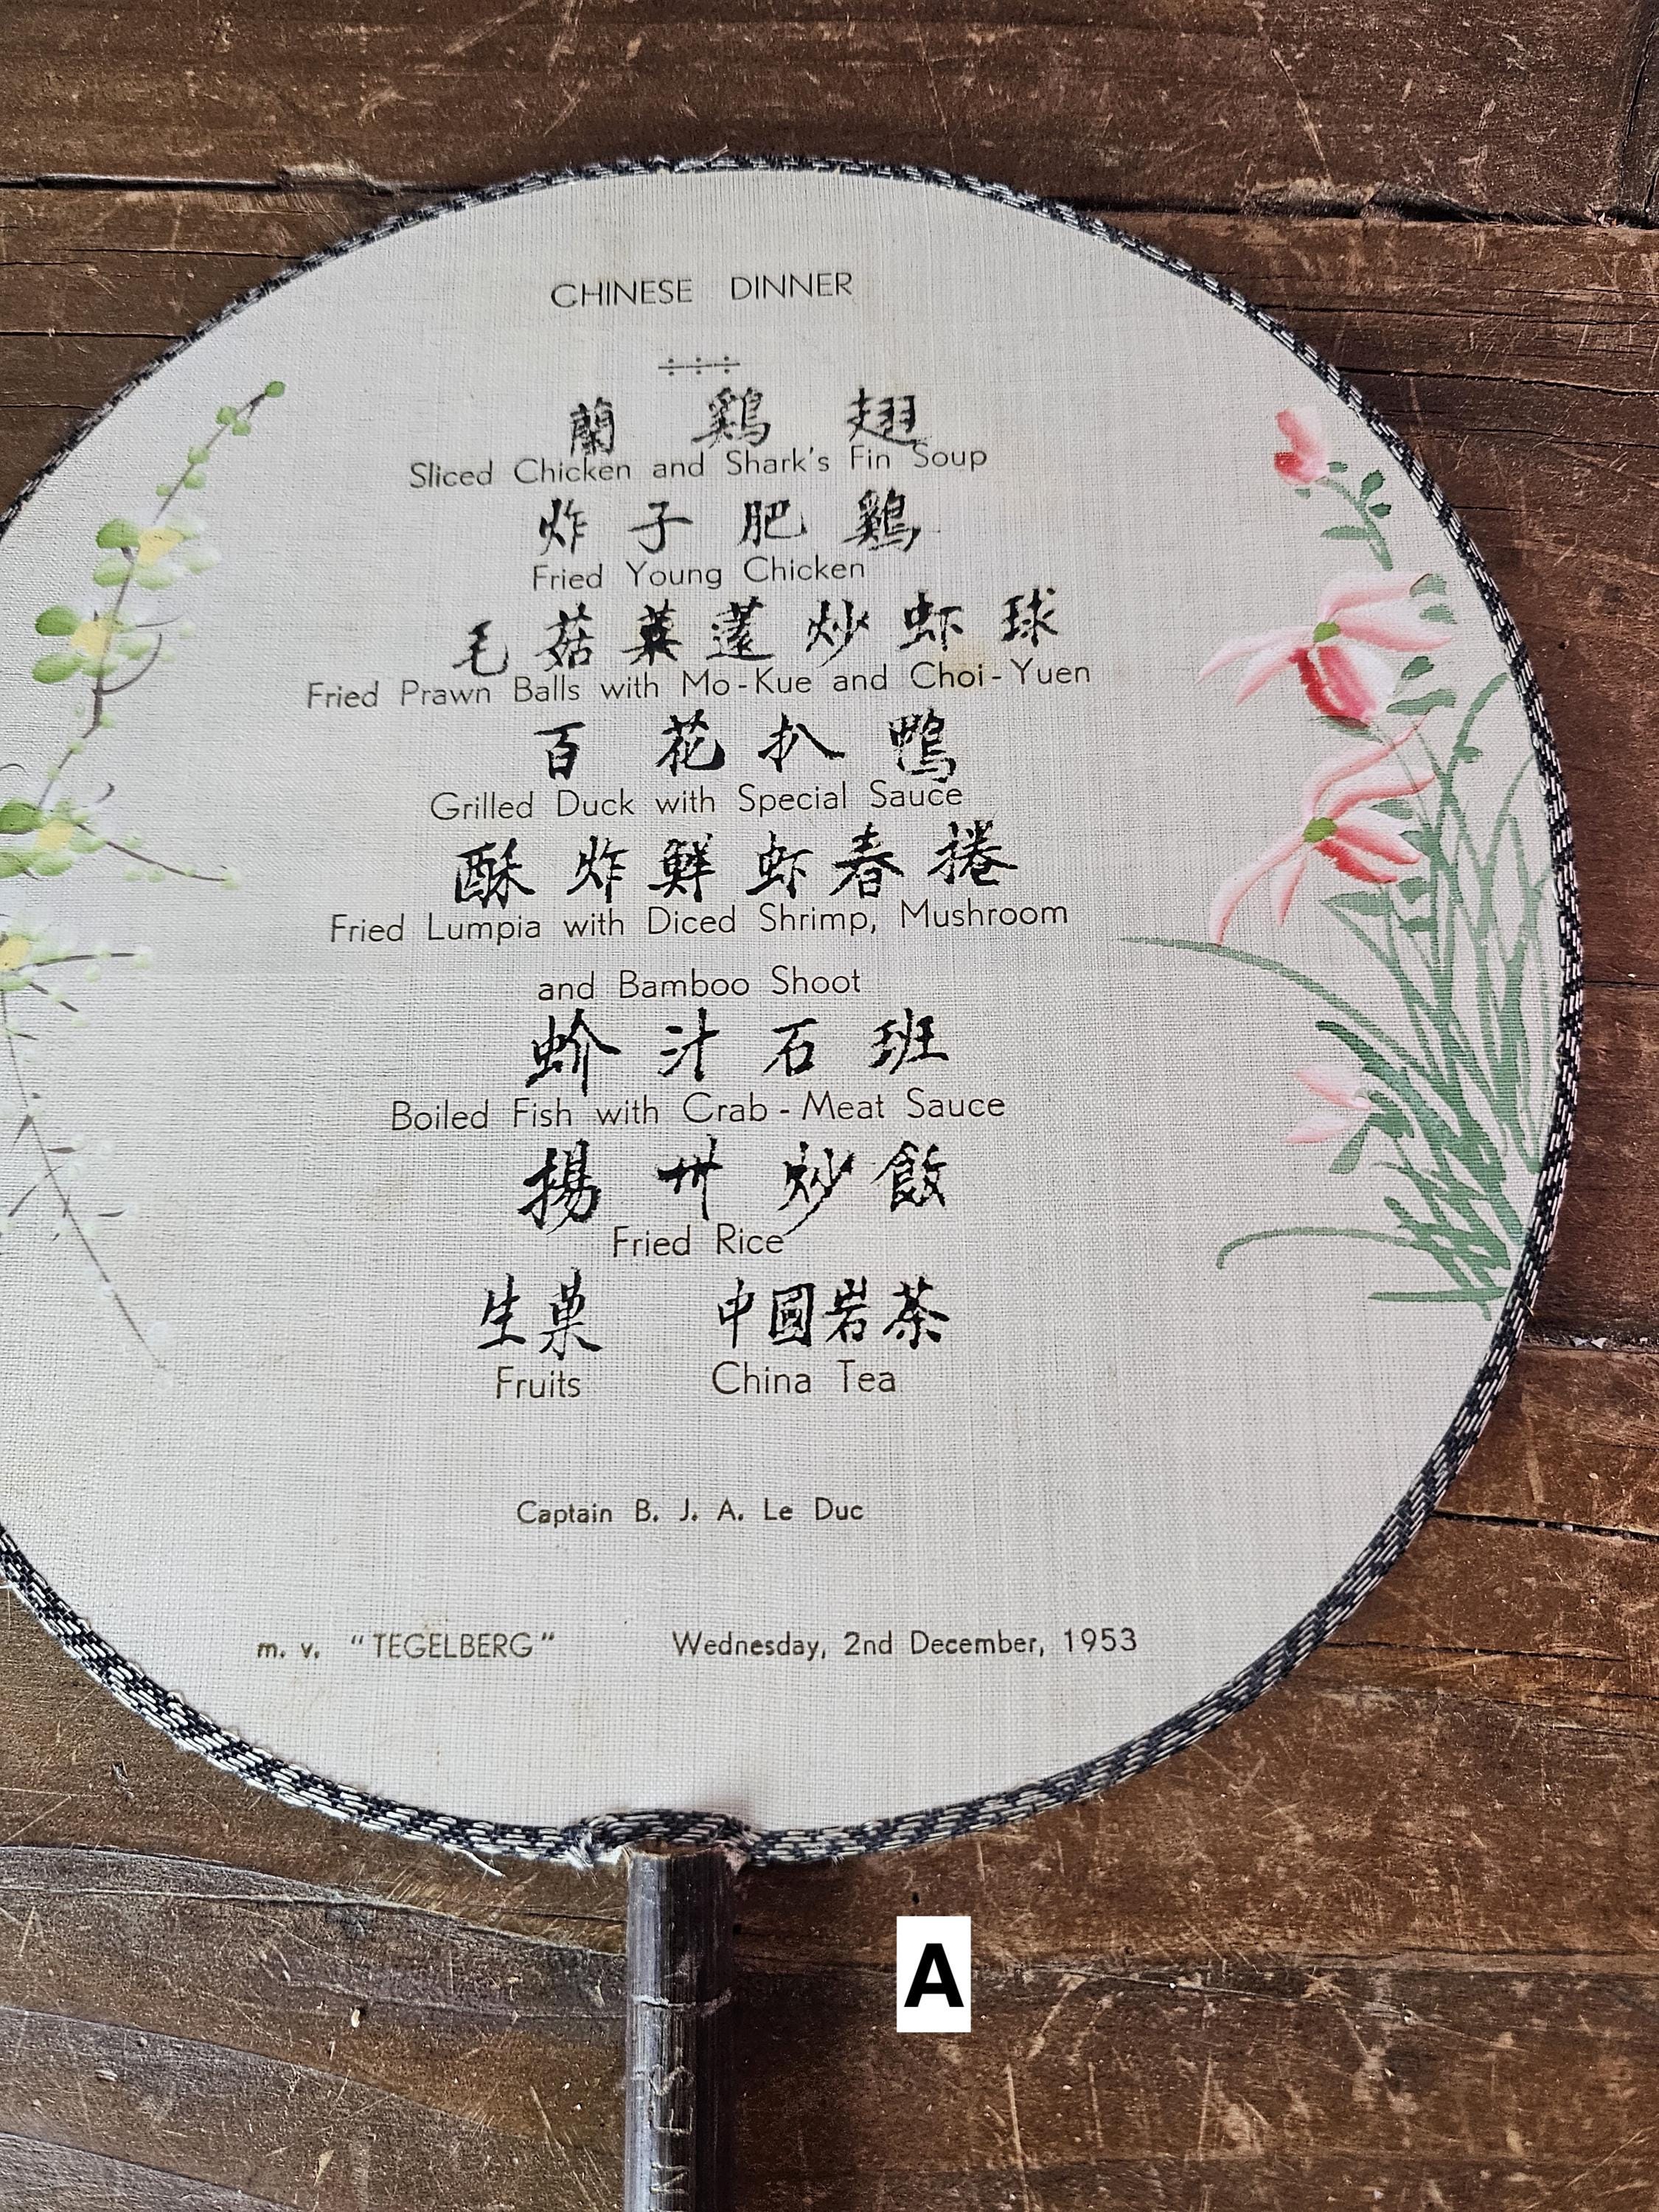 CHINESE DINNER
蘭 鷄 翅
Sliced Chicken and Shark's Fin Soup
炸 子 肥 鷄
Fried Young Chicken
毛 菇 菜 薳 炒 虾 球
Fried Prawn Balls with Mo-Kue and Choi-Yuen
百 花 扒 鴨
Grilled Duck with Special Sauce
酥 炸 鮮 虾 春 捲
Fried Lumpia with Diced Shrimp, Mushroom
and Bamboo Shoot
汁 石 班
Boiled Fish with Crab-Meat Sauce
揚 州 炒 飯
Fried Rice
生菓 中國岩茶
Fruits China Tea
Captain B. J. A. Le Duc
m. v. "TEGELBERG" Wednesday, 2nd December, 1953
A